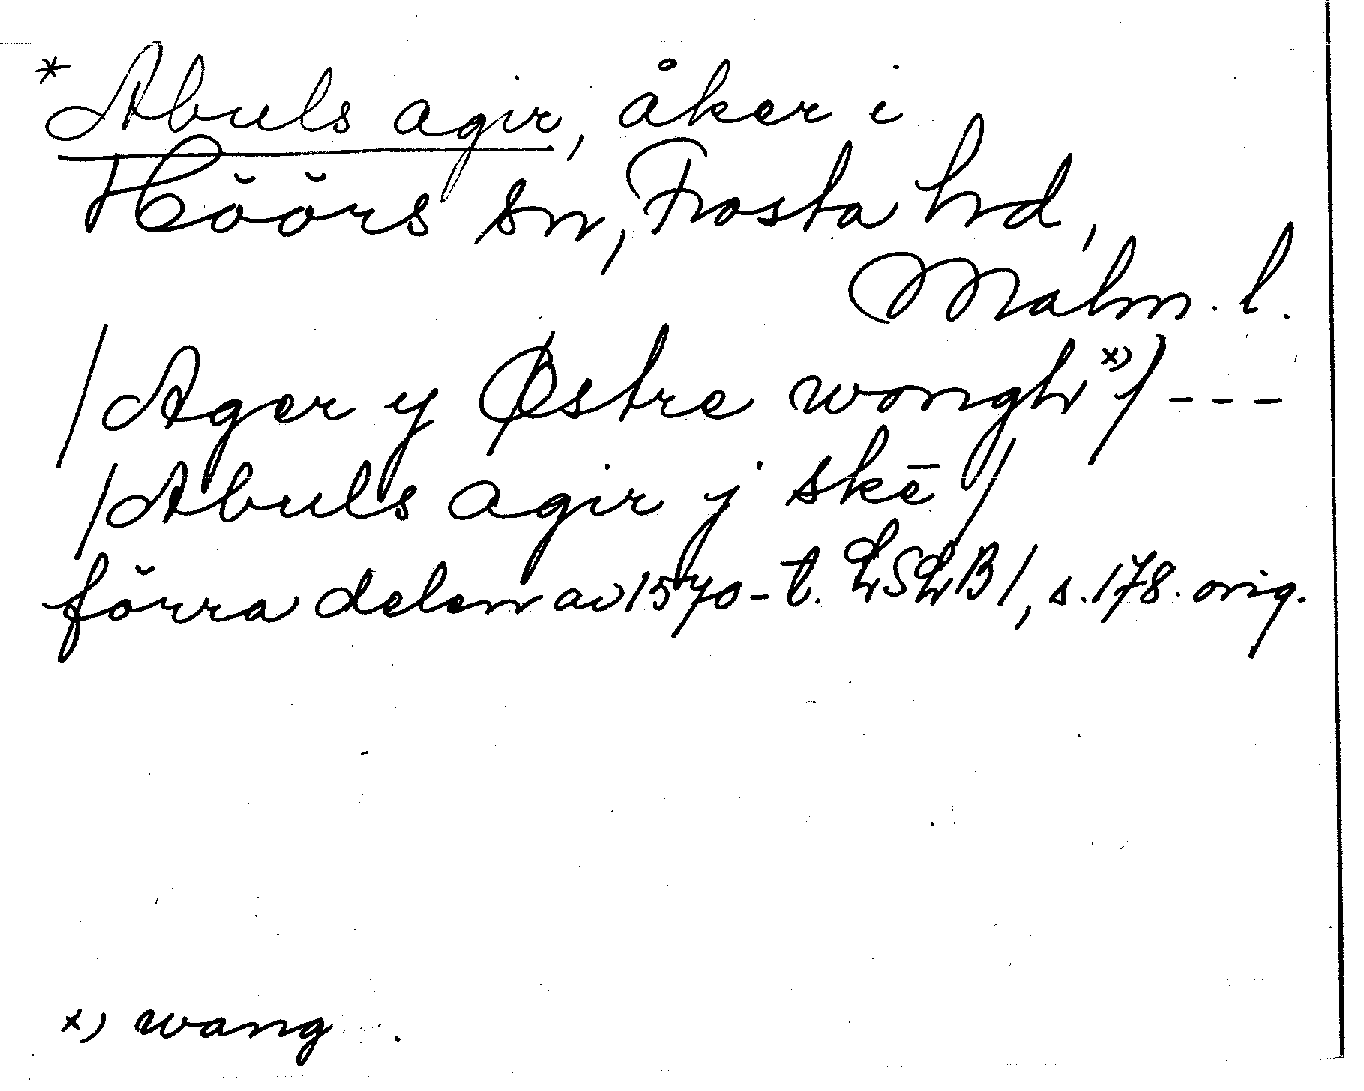 *Abuls agir, åker i
Höörs sn, Frosta hd,
Malm. l.
/Ager y Østre wongh x)/ ---
/Abuls agir j skē/
förra delen av 1570-t. LSLB 1, s. 178. orig.
x) wang .